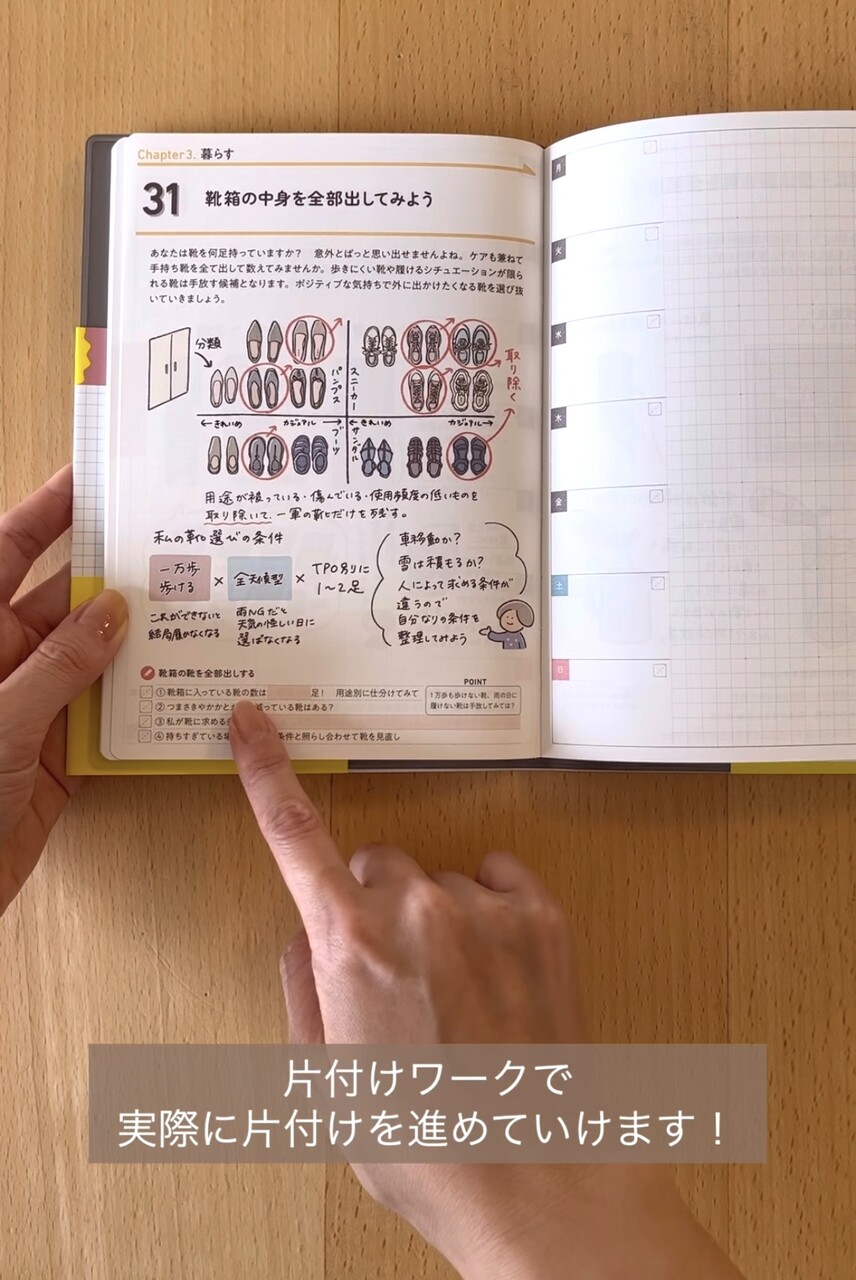 Chapter 3. 暮らす
31 靴箱の中身を全部出してみよう
あなたは靴を何足持っていますか？ 意外とぱっと思い出せませんよね。ケアも兼ねて
手持ち靴を全て出して数えてみませんか。歩きにくい靴や履けるシチュエーションが限ら
れる靴は手放す候補となります。ポジティブな気持ちで外に出かけたくなる靴を選び抜
いていきましょう。
分類
パンプス
スニーカー
取り除く
←きれいめ カジュアル→
←きれいめ カジュアル→
ブーツ
サンダル
用途が被っている・傷んでいる・使用頻度の低いものを
取り除いて、一軍の靴だけを残す。
私の靴選びの条件
一万歩
歩ける
×
全天候型
×
TPO別に
1〜2足
これができないと
結局履かなくなる
雨NGだと
天気の怪しい日に
選ばなくなる
車移動か？
雪は積もるか？
人によって求める条件が
違うので
自分なりの条件を
整理してみよう
靴箱の靴を全部出しする
①靴箱に入っている靴の数は 足！ 用途別に仕分けてみて
②つまさきやかかと 減っている靴はある？
③私が靴に求める
④持ちすぎている 条件と照らし合わせて靴を見直し
POINT
1万歩も歩けない靴、雨の日に
履けない靴は手放してみては？
月
火
水
木
金
土
日
片付けワークで
実際に片付けを進めていけます！